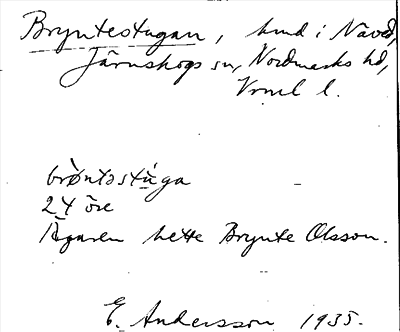 Bryntestugan, hmd i Näved,
Järnskogs sn, Nordmarks hd,
Vrml l.
brø̀ntəstù̠ga
24 öre
Ägaren hette Brynte Olsson.
E. Andersson 1935.